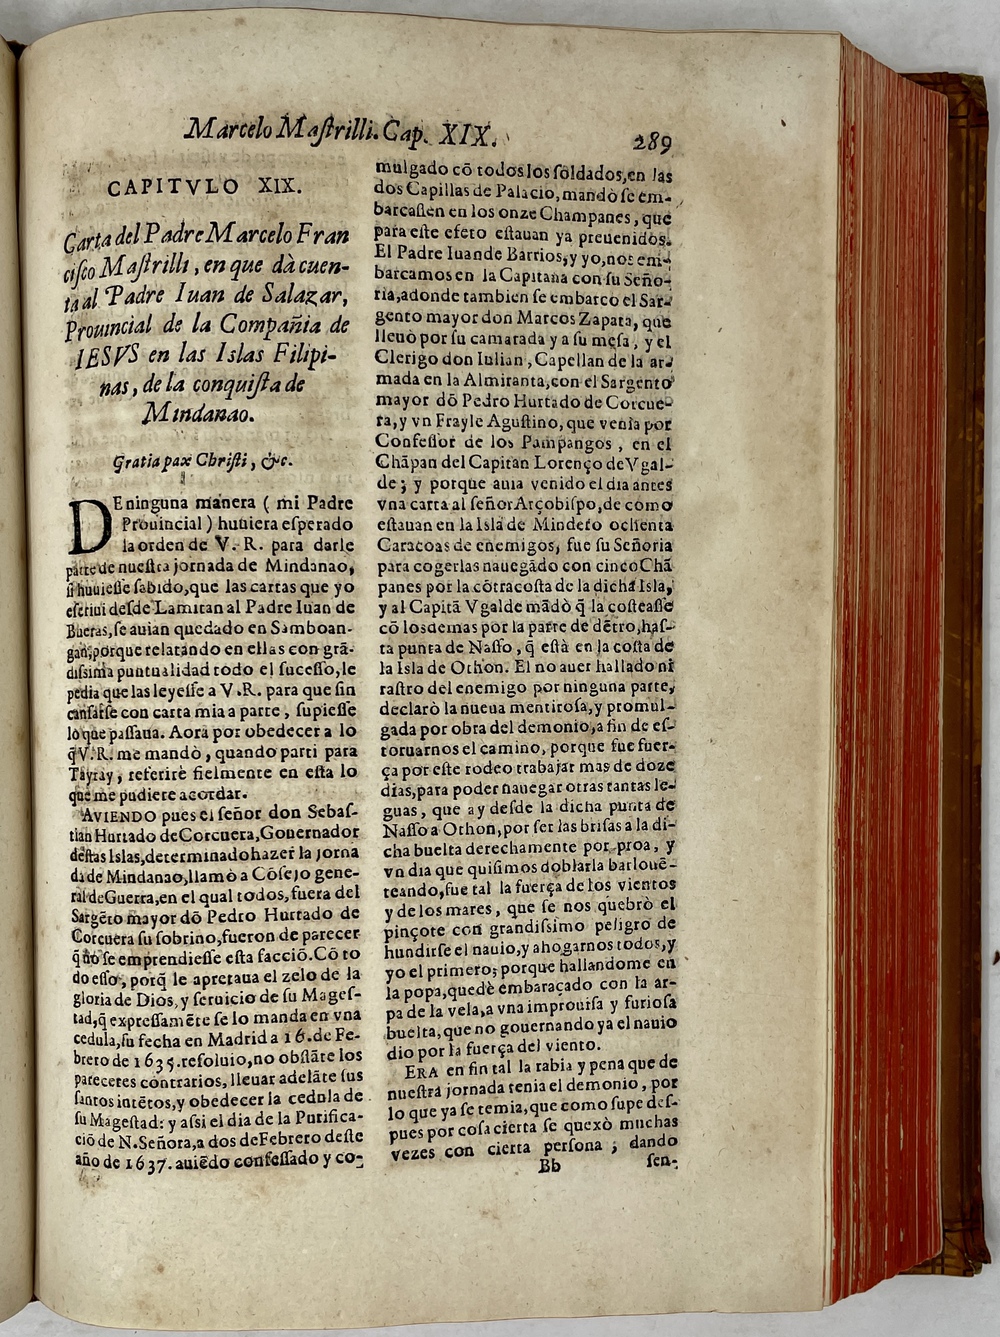 Marcelo Maſtrilli. Cap. XIX.
289
CAPITVLO XIX.
Carta del Padre Marcelo Fran
ciſco Maſtrilli, en que dà cuen-
ta al Padre Iuan de Salazar,
Prouincial de la Compañia de
IESVS en las Islas Filipi-
nas, de la conquiſta de
Mindanao.
Gratia pax Chriſti, &c.
DE ninguna manera ( mi Padre
Prouincial ) huuiera eſperado
la orden de V. R. para darle
parte de nueſtra jornada de Mindanao,
ſi huuieſſe ſabido, que las cartas que yo
eſcriui deſde Lamitan al Padre Iuan de
Bueras, ſe auian quedado en Samboan-
gan, porque relatando en ellas con grã-
diſsima puntualidad todo el ſuceſſo, le
pedia que las leyeſſe a V.R. para que ſin
canſarſe con carta mia a parte, ſupieſſe
lo que paſſaua. Aora por obedecer a lo
q̃ V.R. me mandò, quando parti para
Taytay, referirè fielmente en eſta lo
que me pudiere acordar.
AVIENDO pues el ſeñor don Sebaſ-
tian Hurtado de Corcuera, Gouernador
deſtas Islas, determinado hazer la jorna
da de Mindanao, llamò a Cõſejo gene-
ral de Guerra, en el qual todos, fuera del
Sargẽto mayor dõ Pedro Hurtado de
Corcuera ſu ſobrino, fueron de parecer
q̃ no ſe emprendieſſe eſta facciõ. Cõ to
do eſſo, porq̃ le apretaua el zelo de la
gloria de Dios, y ſeruicio de ſu Mageſ-
tad, q̃ expreſſamẽte ſe lo manda en vna
cedula, ſu fecha en Madrid a 16. de Fe-
brero de 1635. reſoluio, no obſtãte los
pareceres contrarios, lleuar adelãte ſus
ſantos intẽtos, y obedecer la cedula de
ſu Mageſtad: y aſsi el dia de la Purifica-
ciõ de N. Señora, a dos de Febrero deſte
año de 1637. auiẽdo confeſſado y co-
mulgado cõ todos los ſoldados, en las
dos Capillas de Palacio, mandò ſe em-
barcaſſen en los onze Champanes, que
para eſte efeto eſtauan ya preuenidos.
El Padre Iuan de Barrios, y yo, nos em-
barcamos en la Capitana con ſu Seño-
ria, adonde tambien ſe embarco el Sar-
gento mayor don Marcos Zapata, que
lleuò por ſu camarada y a ſu meſa, y el
Clerigo don Iulian, Capellan de la ar-
mada en la Almiranta, con el Sargento
mayor dõ Pedro Hurtado de Corcue-
ra, y vn Frayle Aguſtino, que venia por
Confeſſor de los Pampangos, en el
Chãpan del Capitan Lorenço de Vgal-
de; y porque auia venido el dia antes
vna carta al ſeñor Arçobiſpo, de como
eſtauan en la Isla de Mindero ochenta
Caracoas de enemigos, fue ſu Señoria
para cogerlas nauegãdo con cinco Chã
panes por la cõtracoſta de la dicha Isla,
y al Capitã Vgalde mãdò q̃ la coſteaſſe
cõ los demas por la parte de dẽtro, haſ-
ta punta de Naſſo, q̃ eſtà en la coſta de
la Isla de Othon. El no auer hallado ni
raſtro del enemigo por ninguna parte,
declarò la nueua mentiroſa, y promul-
gada por obra del demonio, a fin de eſ-
toruarnos el camino, porque fue fuer-
ça por eſte rodeo trabajar mas de doze
dias, para poder nauegar otras tantas le-
guas, que ay deſde la dicha punta de
Naſſo a Othon, por ſer las briſas a la di-
cha buelta derechamente por proa, y
vn dia que quiſimos doblarla barlouẽ-
teando, fue tal la fuerça de los vientos
y de los mares, que ſe nos quebrò el
pinçote con grandiſsimo peligro de
hundirſe el nauio, y ahogarnos todos, y
yo el primero; porque hallandome en
la popa, quedè embaraçado con la ar-
pa de la vela, a vna improuiſa y furioſa
buelta, que no gouernando ya el nauio
dio por la fuerça del viento.
ERA en fin tal la rabia y pena que de
nueſtra jornada tenia el demonio, por
lo que ya ſe temia, que como ſupe deſ-
pues por coſa cierta ſe quexò muchas
vezes con cierta perſona; dando
Bb
ſen-